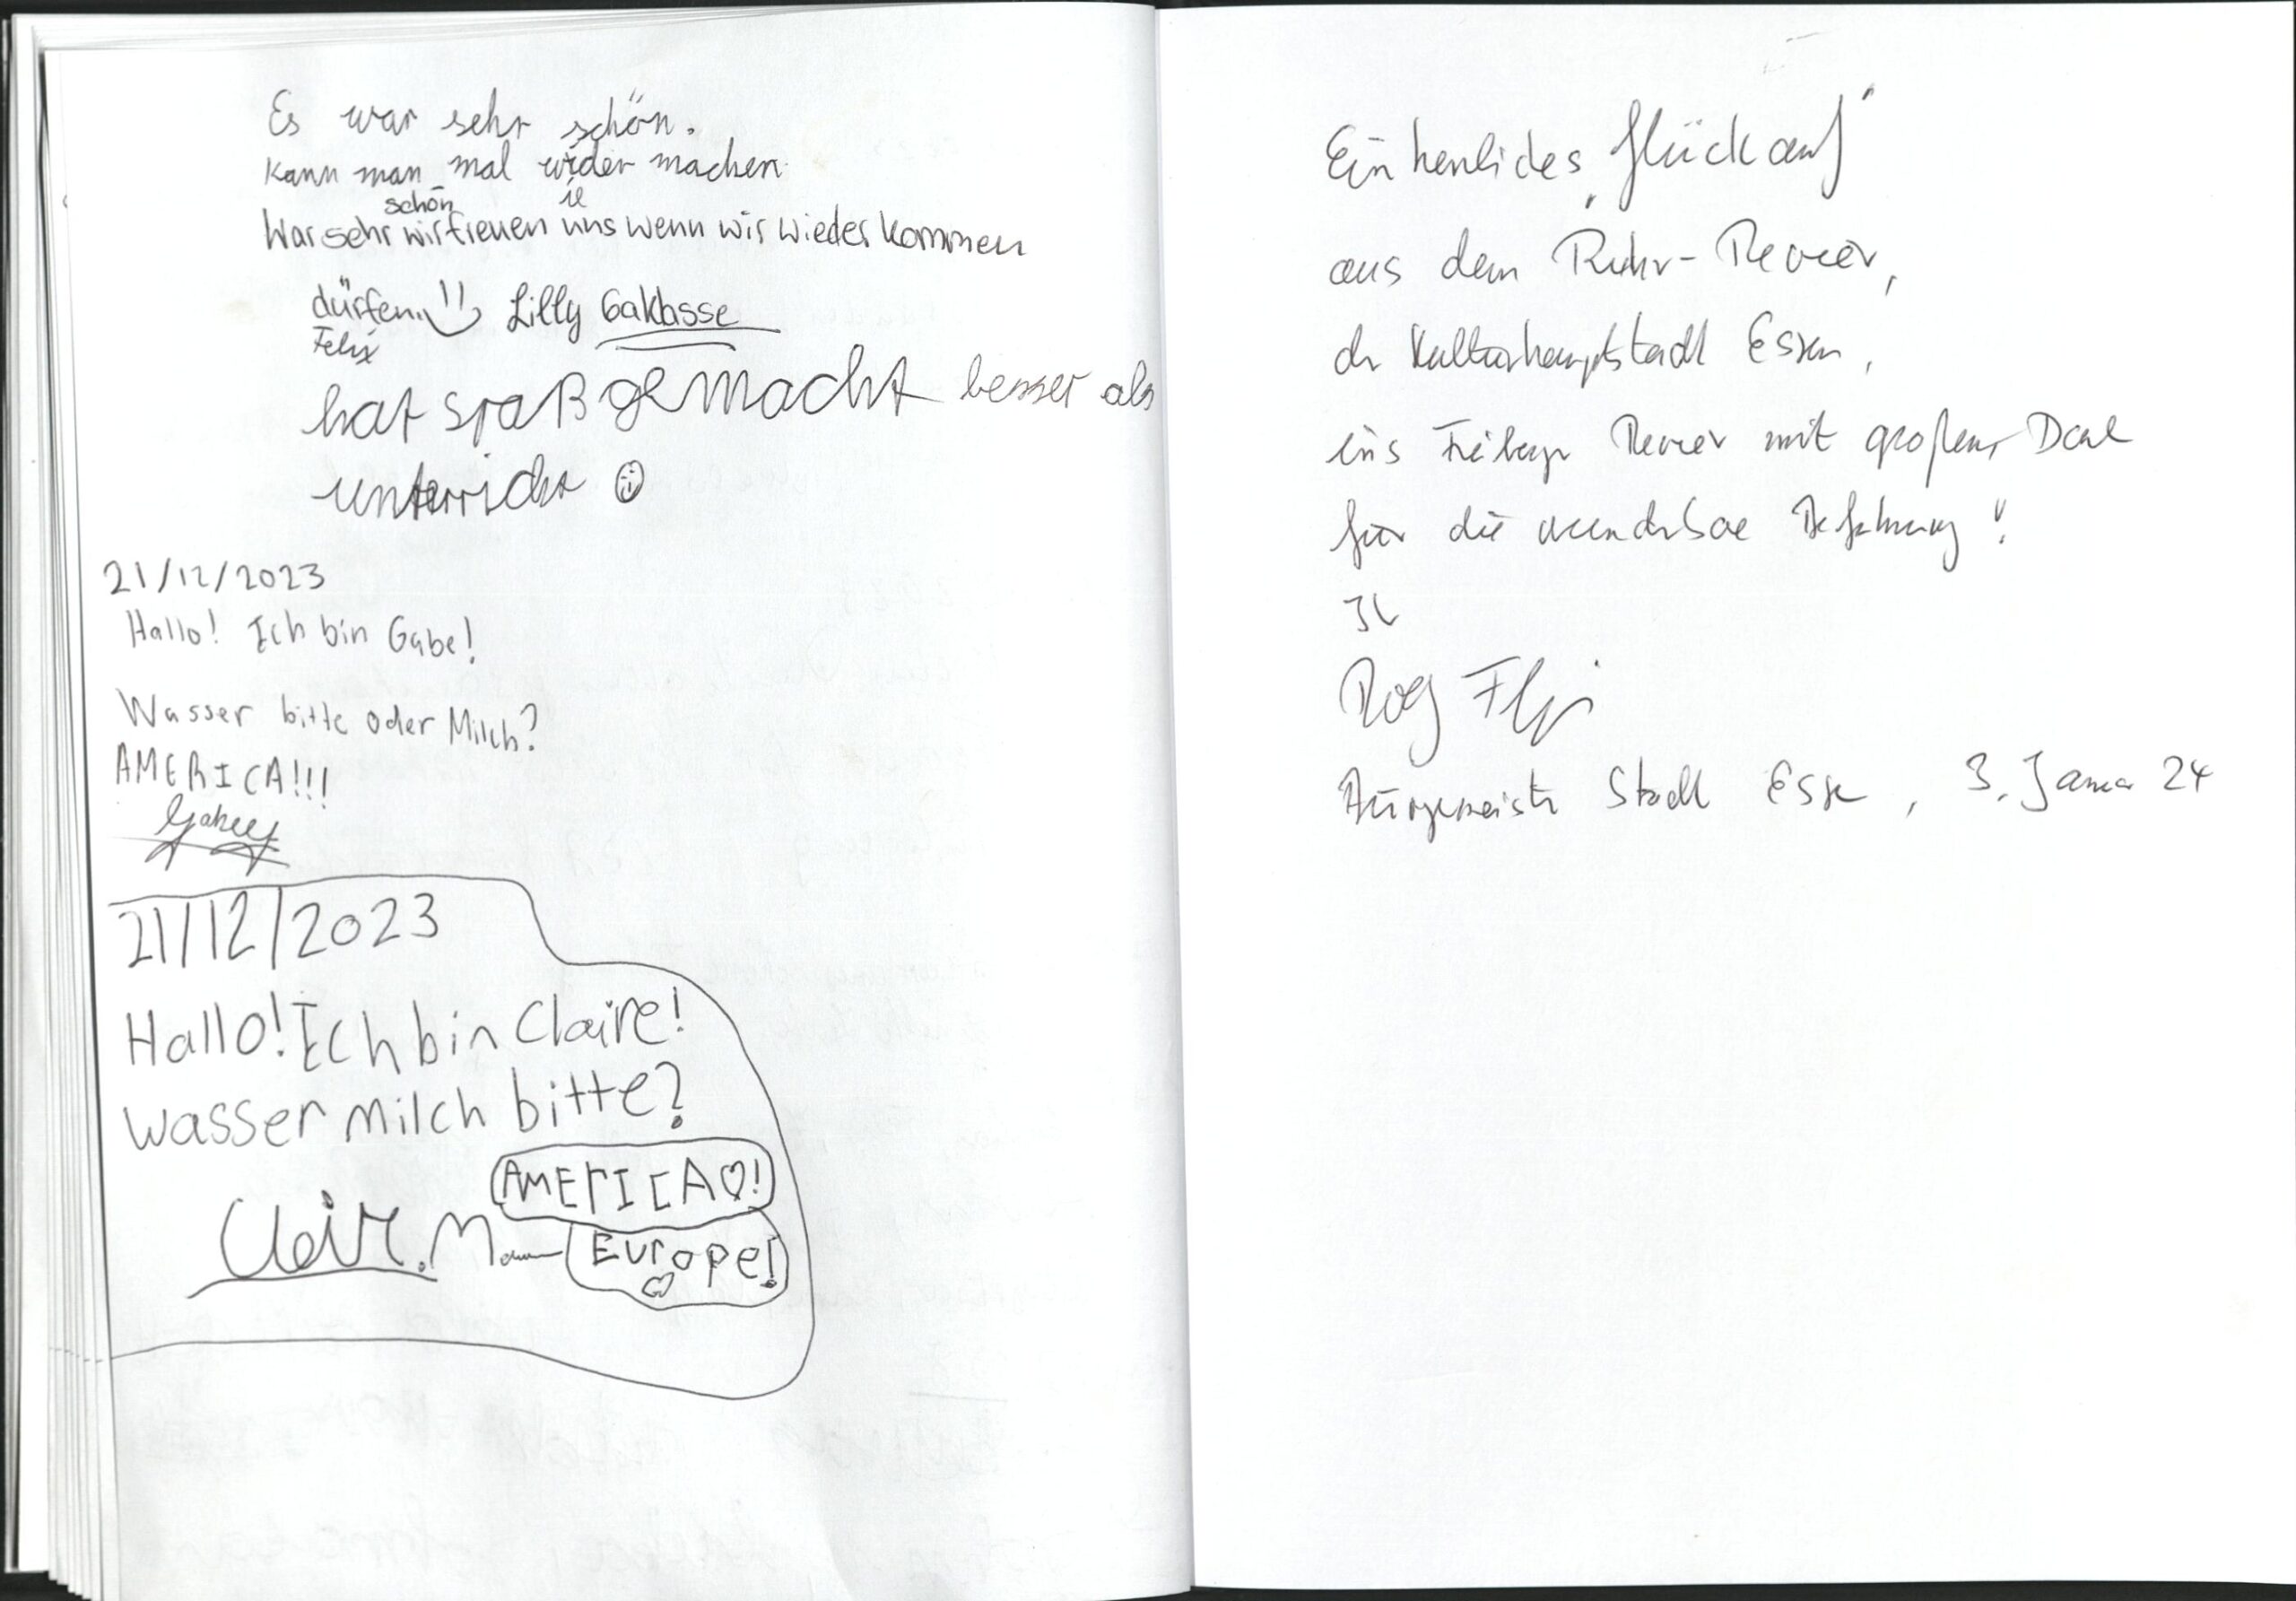 Es war sehr schön.
Kann man mal wider machen
ie
schön
War sehr wir freuen uns wenn wir wieder kommen
dürfen. Lilly 6a Klasse
Felix
hat spaß gemacht besser als
unterricht ☺
21/12/2023
Hallo! Ich bin Gabe!
Wasser bitte oder Milch?
AMERICA!!!
21/12/2023
Hallo! Ich bin Claire!
Wasser Milch bitte?
AMERICA♡!
Claire M
Europe!
♡
Ein herzliches „Glück auf"
aus dem Ruhr-Revier,
der Kulturhauptstadt Essen,
ins Freiberger Revier mit großem Dank
für die wunderbare Befahrung!
Ihr
Bürgermeister Stadt Essen, 3. Januar 24